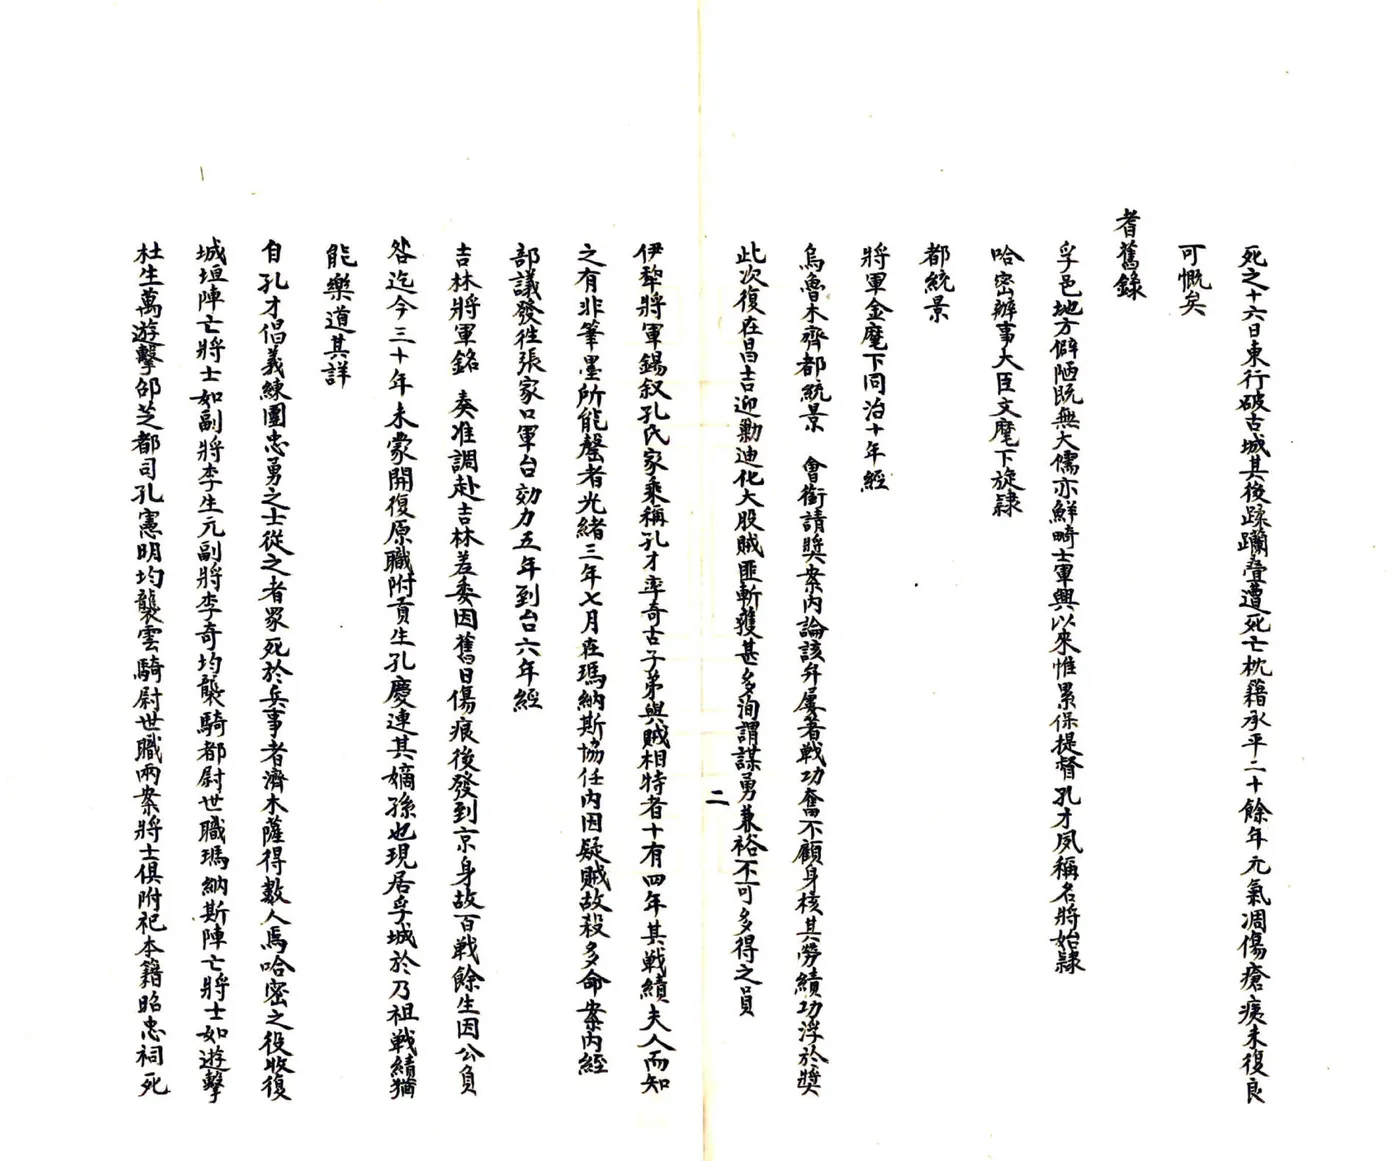 死之十六日東行破古城其後蹂躪疊遭死亡枕藉承平二十餘年元氣凋傷瘡痍未復良
可慨矣
耆舊錄
孚邑地方僻陋既無大儒亦鮮畸士軍興以來惟累保提督孔才夙稱名將始隸
哈密辦事大臣文麾下旋隸
都統景
將軍金麾下同治十年經
烏魯木齊都統景　會銜請獎案內論該弁屢著戰功奮不顧身核其勞績功浮於獎
此次復在昌吉迎勦迪化大股賊匪斬獲甚多洵謂謀勇兼裕不可多得之員
二
伊犂將軍錫叙孔氏家乘稱孔才率奇古子弟與賊相特者十有四年其戰績夫人而知
之有非筆墨所能罄者光緒三年七月在瑪納斯協任內因疑賊故殺多命案內經
部議發往張家口軍台効力五年到台六年經
吉林將軍銘　奏准調赴吉林差委因舊日傷痕後發到京身故百戰餘生因公負
咎迄今三十年未蒙開復原職附貢生孔慶連其嫡孫也現居孚城於乃祖戰績猶
能樂道其詳
自孔才倡義練團忠勇之士從之者眾死於兵事者濟木薩得數人焉哈密之役收復
城垣陣亡將士如副將李生元副將李奇均襲騎都尉世職瑪納斯陣亡將士如遊擊
杜生萬遊擊邰芝都司孔憲明均襲雲騎尉世職兩案將士俱附祀本籍昭忠祠死